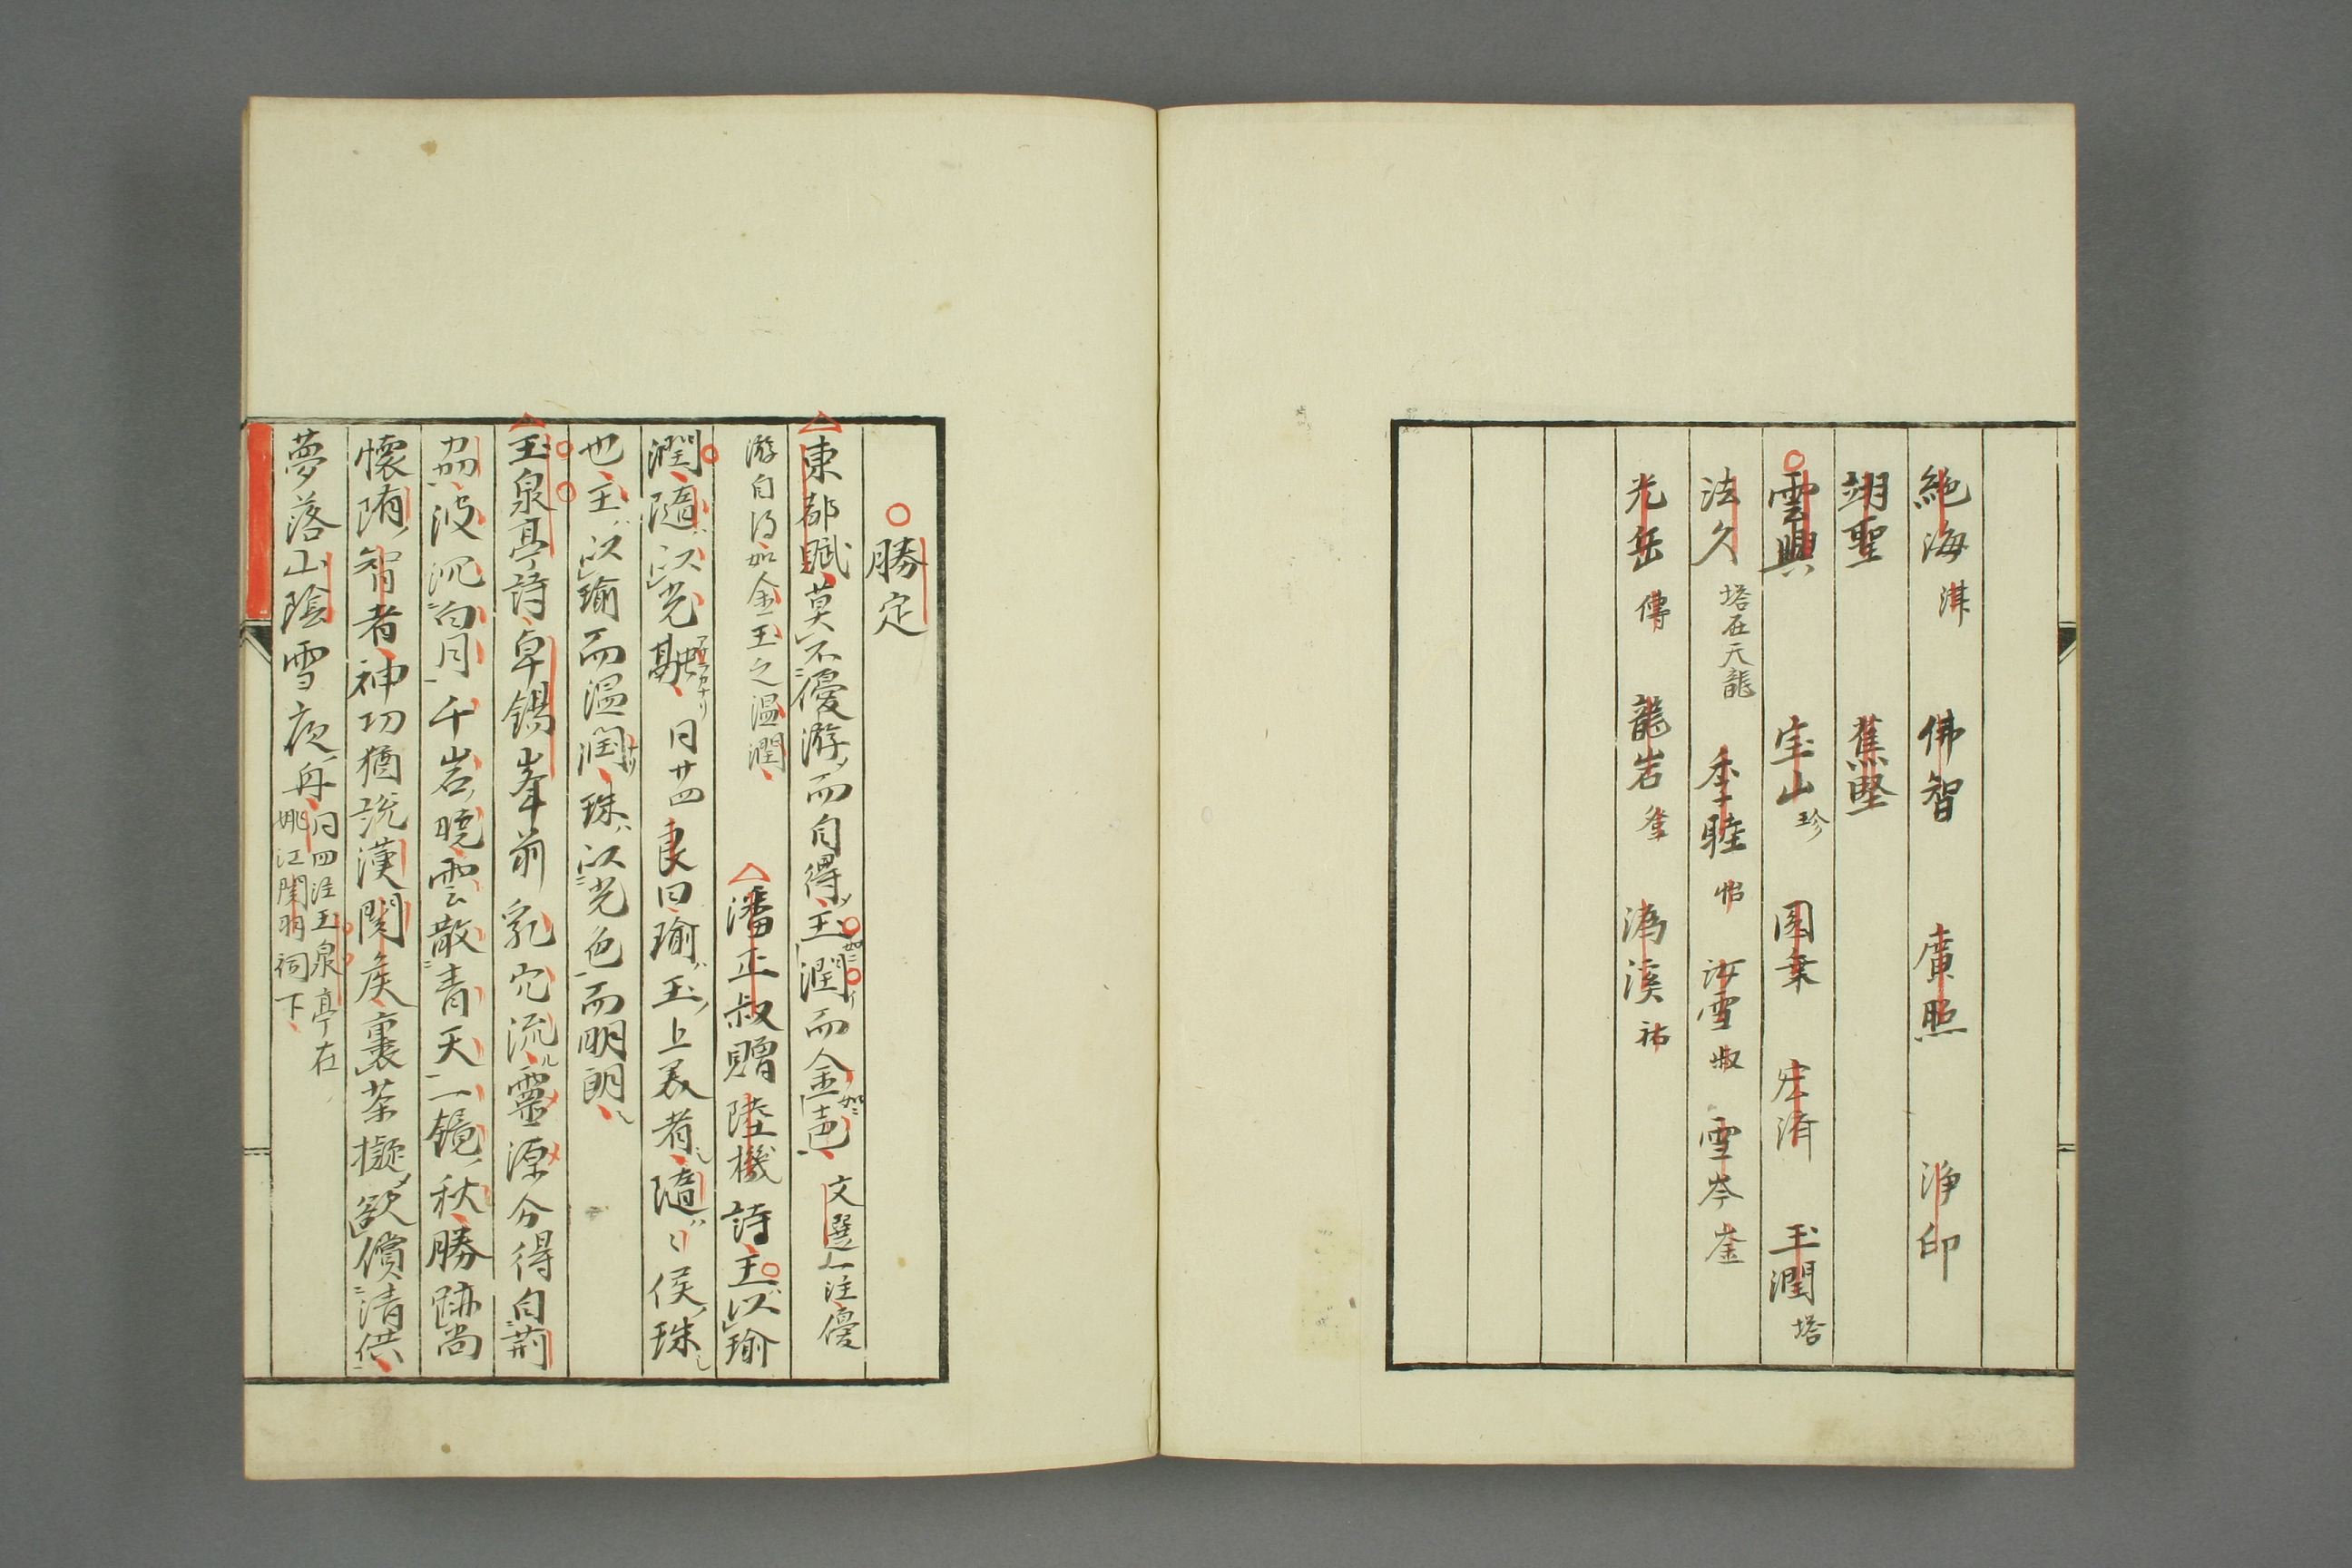 絶海 佛智 廣照 淨印
翊聖 蕉堅
雲興 宝山珍 圓乗 宏済 玉潤塔
法久 塔在天龍 季睦 汝雪 雪岑崟
光岳傳 龍岩 溈溪祐
勝定
東都賦莫不優游而自得玉潤而金色 文選一注優
游自得如金玉之温潤 潘正叔贈陸機詩玉以瑜
潤隨以光融 日廿四良曰瑜玉上美者隨〻侯珠
也玉以瑜而温潤珠以光色而明朗
玉泉亭詩卓錫峯前乳穴流靈源分得自荊
刕波沉白月千岩曉雲散青天一鏡秋勝跡尚
懷隋智者神功猶説漢関侯裏茶擬欲償清供
夢落山陰雪夜舟 日四注玉泉亭在
姚江関明祠下